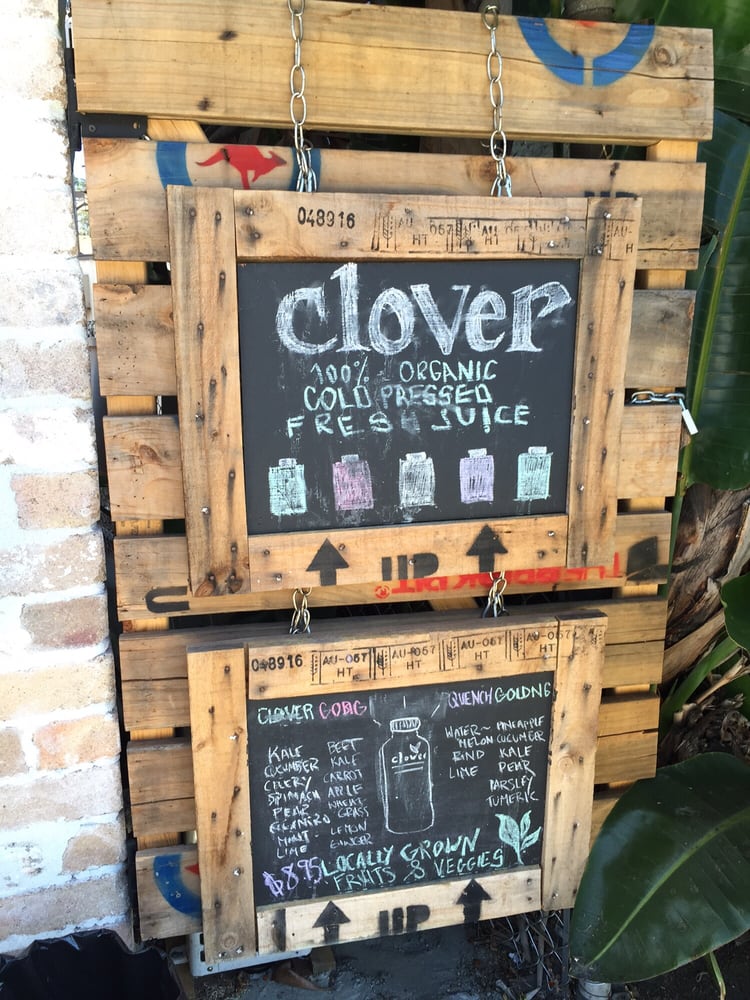 048916
AU
HT
057
AU
HT
057
AU-
H
clover
100% ORGANIC
COLD PRESSED
FRESH JUICE
UP
048916
AU-057
HT
AU-057
HT
AU-057
HT
AU-057
HT
CLOVER
KALE
CUCUMBER
CELERY
SPINACH
PEAR
CILANTRO
MINT
LIME
BEET
KALE
CARROT
APPLE
WHEAT-
GRASS
LEMON
GINGER
clover
QUENCH
WATER-
MELON
RIND
LIME
GOLDNG
PINEAPPLE
CUCUMBER
KALE
PEAR
PARSLEY
TUMERIC
$8.95
LOCALLY GROWN
FRUITS & VEGGIES
UP